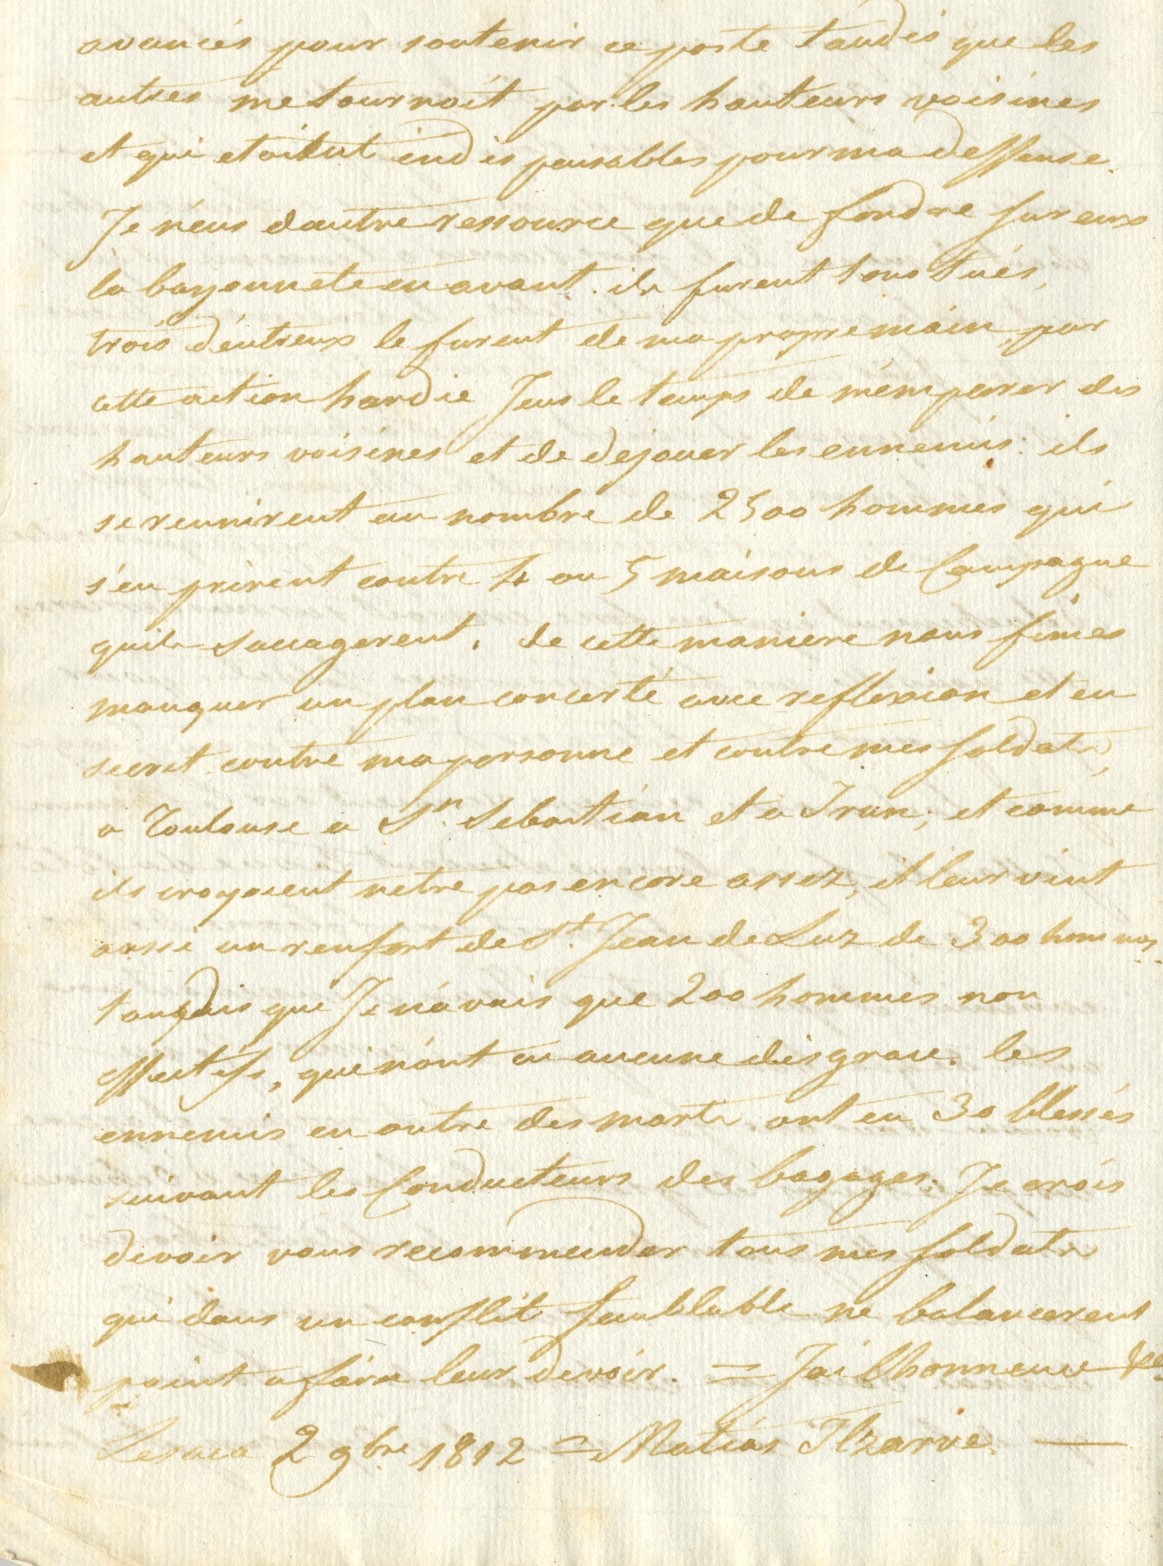 avancés pour soutenir ce poste tandis que les
autres me tournoit par les hauteurs voisines
et qui etoitut indispensables pour ma deffense.
Je n'eus dautre ressource que de fondre sur eux
la bayonnete en avant. ils furent tous tués,
trois d'entreux le furent de ma propre main, par
cette action hardie Jeus le temps de m'emparer des
hauteurs voisines et de dejouer les ennemis: ils
se reunirent au nombre de 2500 hommes qui
s'en prirent contre 4 ou 5 maisons de Campagne
quils saccagerent, de cette maniere nous fimes
manquer un plan concerté avec reflexion et en
secret contre ma personne et contre mes soldats,
a Toulouse a Sn. Sebastián et a Irun; et comme
ils croyoient netre pas encore assez, il leur vint
aussi un renfort de St. Jean de Luz de 300 hommes,
tandis que Je n'avais que 200 hommes non
effectifs, qui n'ont eu aucune disgrace. les
ennemis en outre des morts ont eu 30 blessés
suivant les Conducteurs des bagages. Je crois
devoir vous recommender tous mes soldats
qui dans un conflit semblable ne balancerent
point a faire leur devoir. = Jai l'honneur &c.
Lesaca 2 9bre 1812 = Matias Ilzarve. —